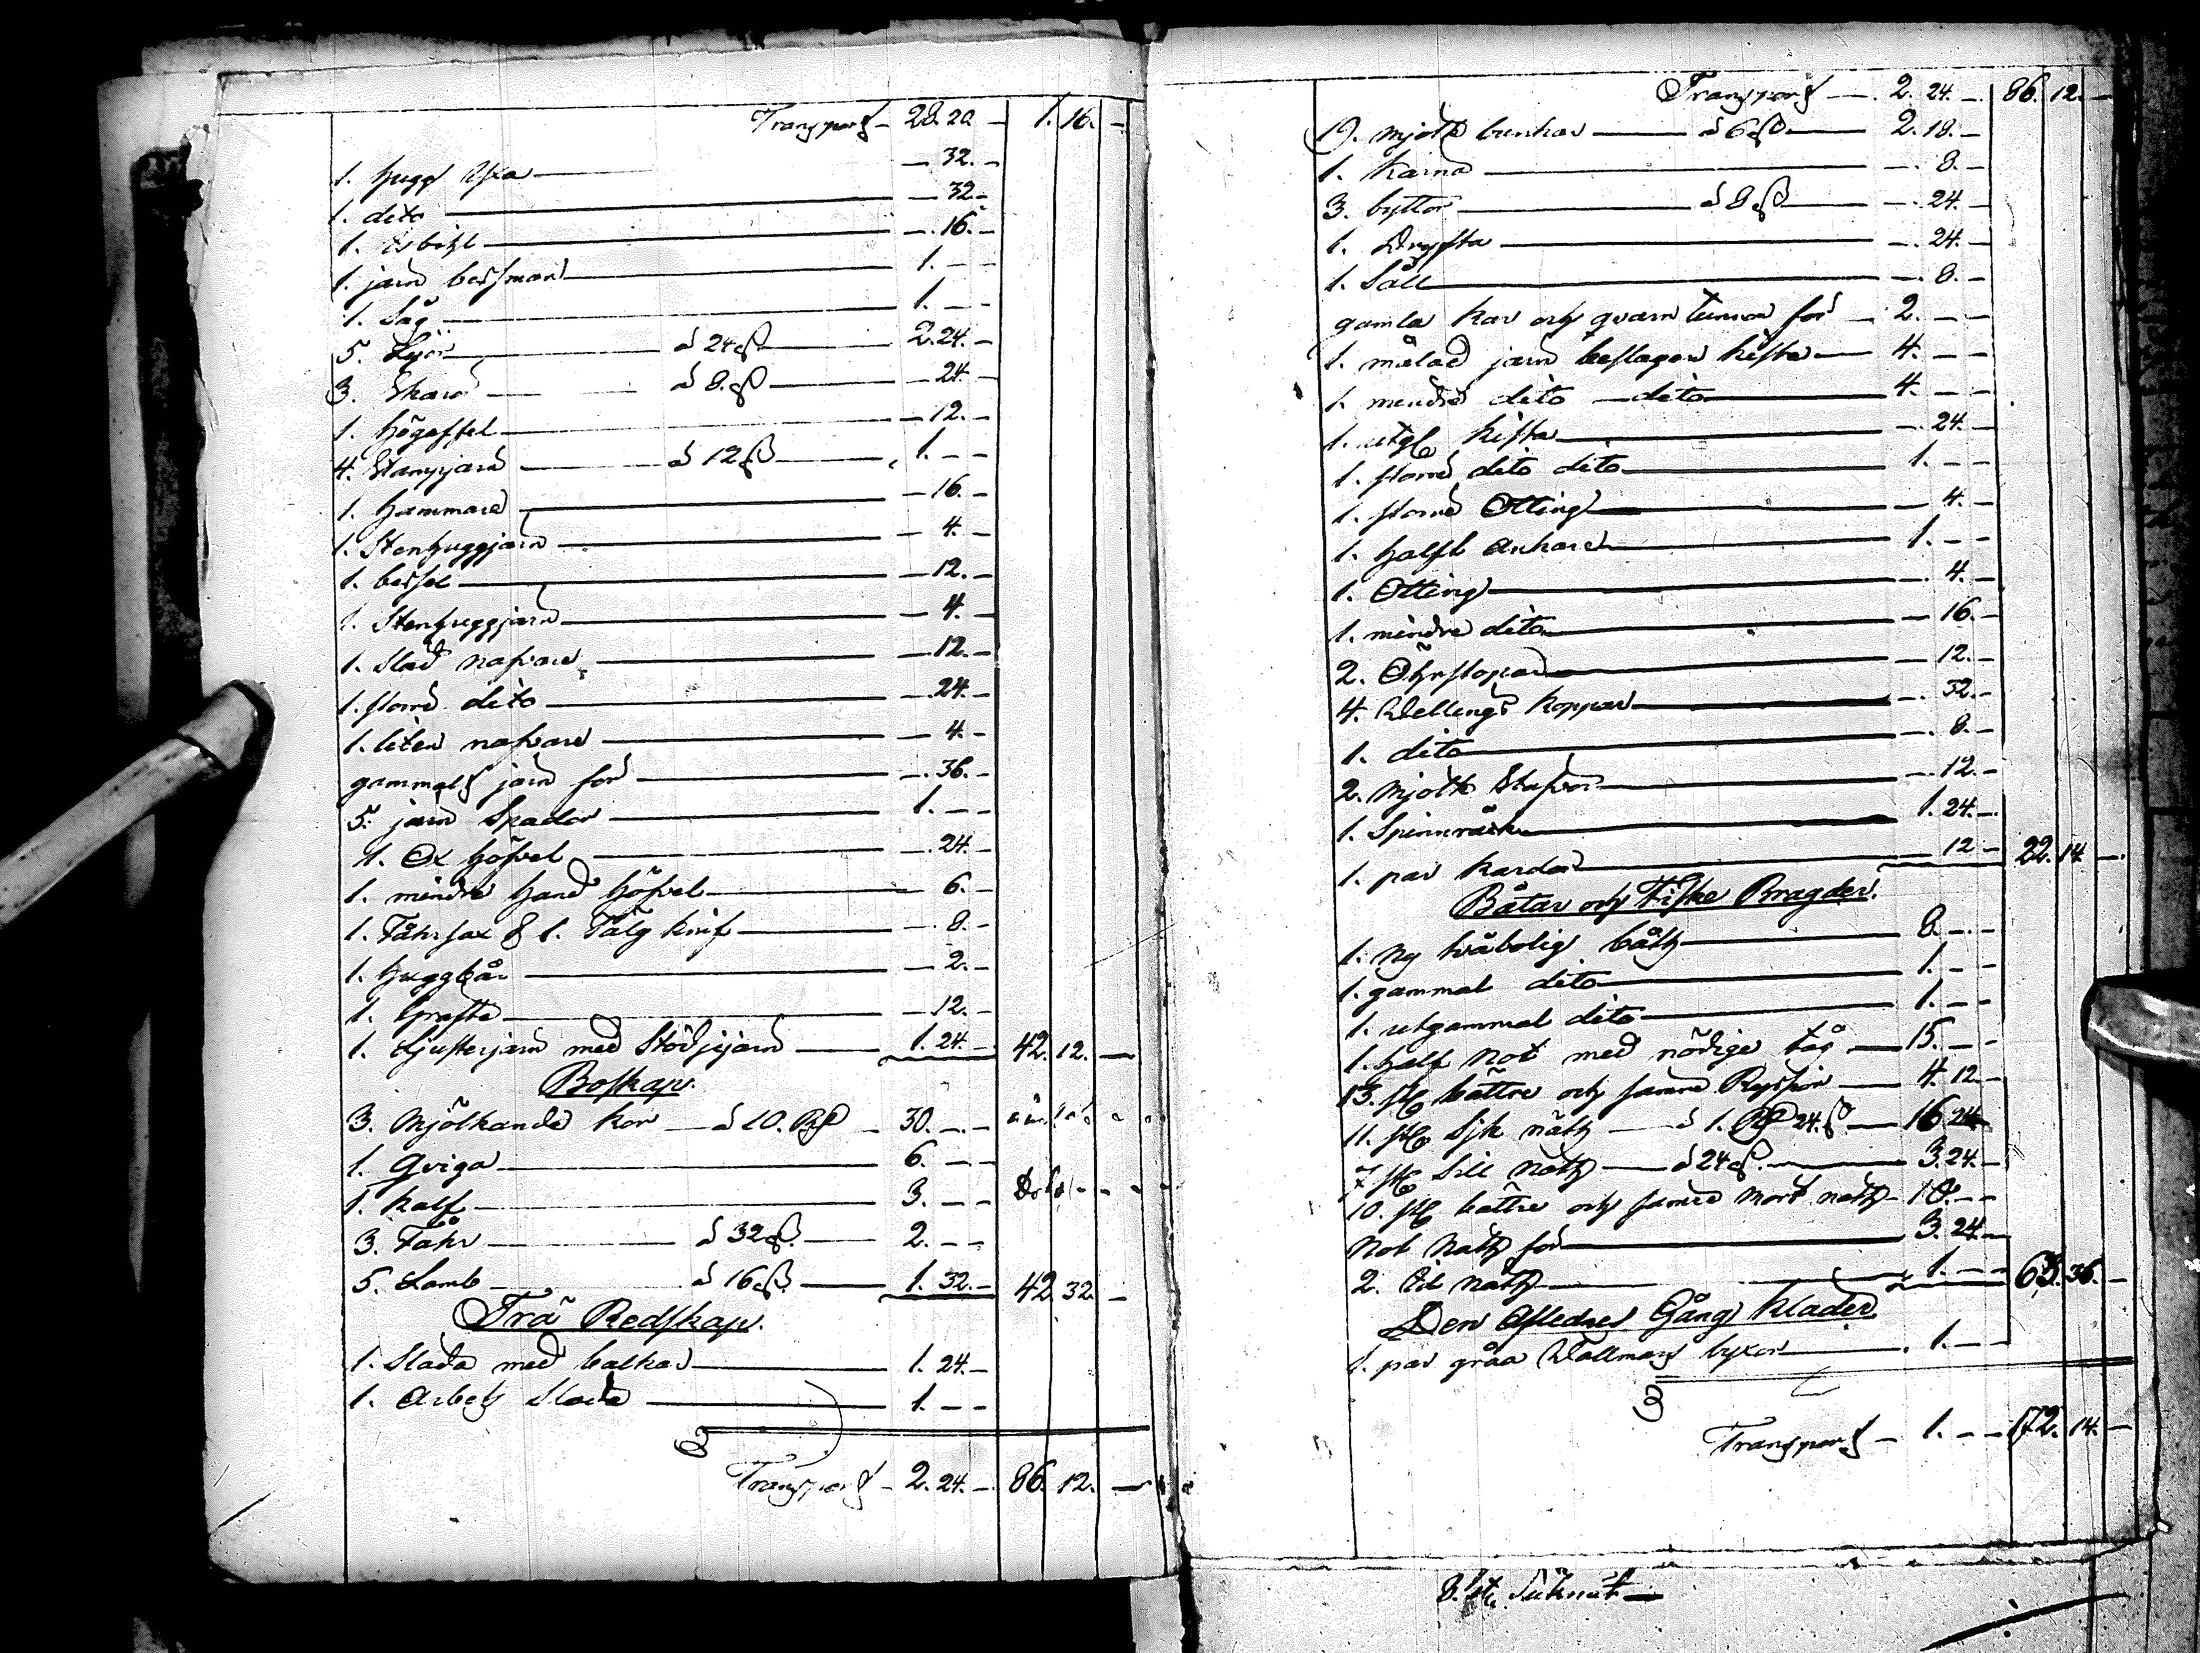 Transport – 28. 20. – 1. 16. –
1. hugg Yxa — 32. –
1. dito — 32. –
1. Isbihl — 16. –
1. jarn besman — 1. – –
1. Såg — 1. – –
5. Lijor — à 24 ß — 2. 24. –
3. Skaror — à 8. ß — 24. –
1. högaffel — 12. –
4. Stangjarn — à 12 ß — 1. – –
1. hammare — 16. –
1. Stenhuggjarn — 4. –
1. bessel — 12. –
1. Stenhuggjarn — 4. –
1. Slad nafvare — 12. –
1. storre dito — 24. –
1. liten nafvare — 4. –
gammalt jarn for — 36. –
5. jarn Spador — 1. – –
1. Ox höfvel — 24. –
1. mindre hand höfvel — 6. –
1. Fåhrsax & 1. Tälg knif — 8. –
1. huggbår — 2. –
1. Grafta — 12. –
1. Ljusterjarn med Stödjejarn — 1. 24. – 42. 12. –
Boskap.
3. Mjölkande kor — à 10. Rd – 30. – –
1. Qviga — 6. – –
1. kalf — 3. – –
3. Fåhr — à 32 ß. — 2. – –
5. Lamb — à 16 ß. — 1. 32. – 42. 32. –
Trä Redskap.
1. Slada med balkar — 1. 24. –
1. Arbets Slada — 1. – –
Transport – 2. 24. – 86. 12. –
Transport — 2. 24. – 86. 12. –
19. mjölk bunkar — à 6 ß — 2. 18. –
1. Karna — 8. –
3. byttor — à 8 ß — 24. –
1. Dryfta — 24. –
1. Såll — 8. –
gamla kar och qvarn tunnor for – 2. – –
1. målad jarn beslagen kista — 4. – –
1. mindre dito – dito — 4. – –
1. utgl kista — 24. –
1. storre dito dito — 1. – –
1. storre Otting — 4. –
1. halft Ankare — 1. – –
1. Otting — 4. –
1. mindre dito — 16. –
2. Öhrstopar — 12. –
4. Wellings koppar — 32. –
1. dito — 8. –
2. Mjölk Stafvor — 12. –
1. Spinnråck — 1. 24. –
1. par kardor — 12 – 22. 14. –
Båtar och Fiske Bragder.
1. ny tvåbolig båth — 8. – –
1. gammal dito — 1. – –
1. utgammal dito — 1. – –
1. half not med nödige tåg — 15. – –
13. st bättre och samre Ryssior — 4. 12 –
11. st Sjk näth — à 1. Rd 24. ß — 16. 24 –
7. st Sill näth — à 24 ß. — 3. 24. –
10. st bättre och samre mort näth – 10. – –
not näth for — 3. 24. –
2. Id näth — 1. – – 63. 36. –
Den Aflednes Gång Kläder
1. par gråa Wallmans byxor — 1. – –
Transport – 1. – – 172. 14. –
3. st.